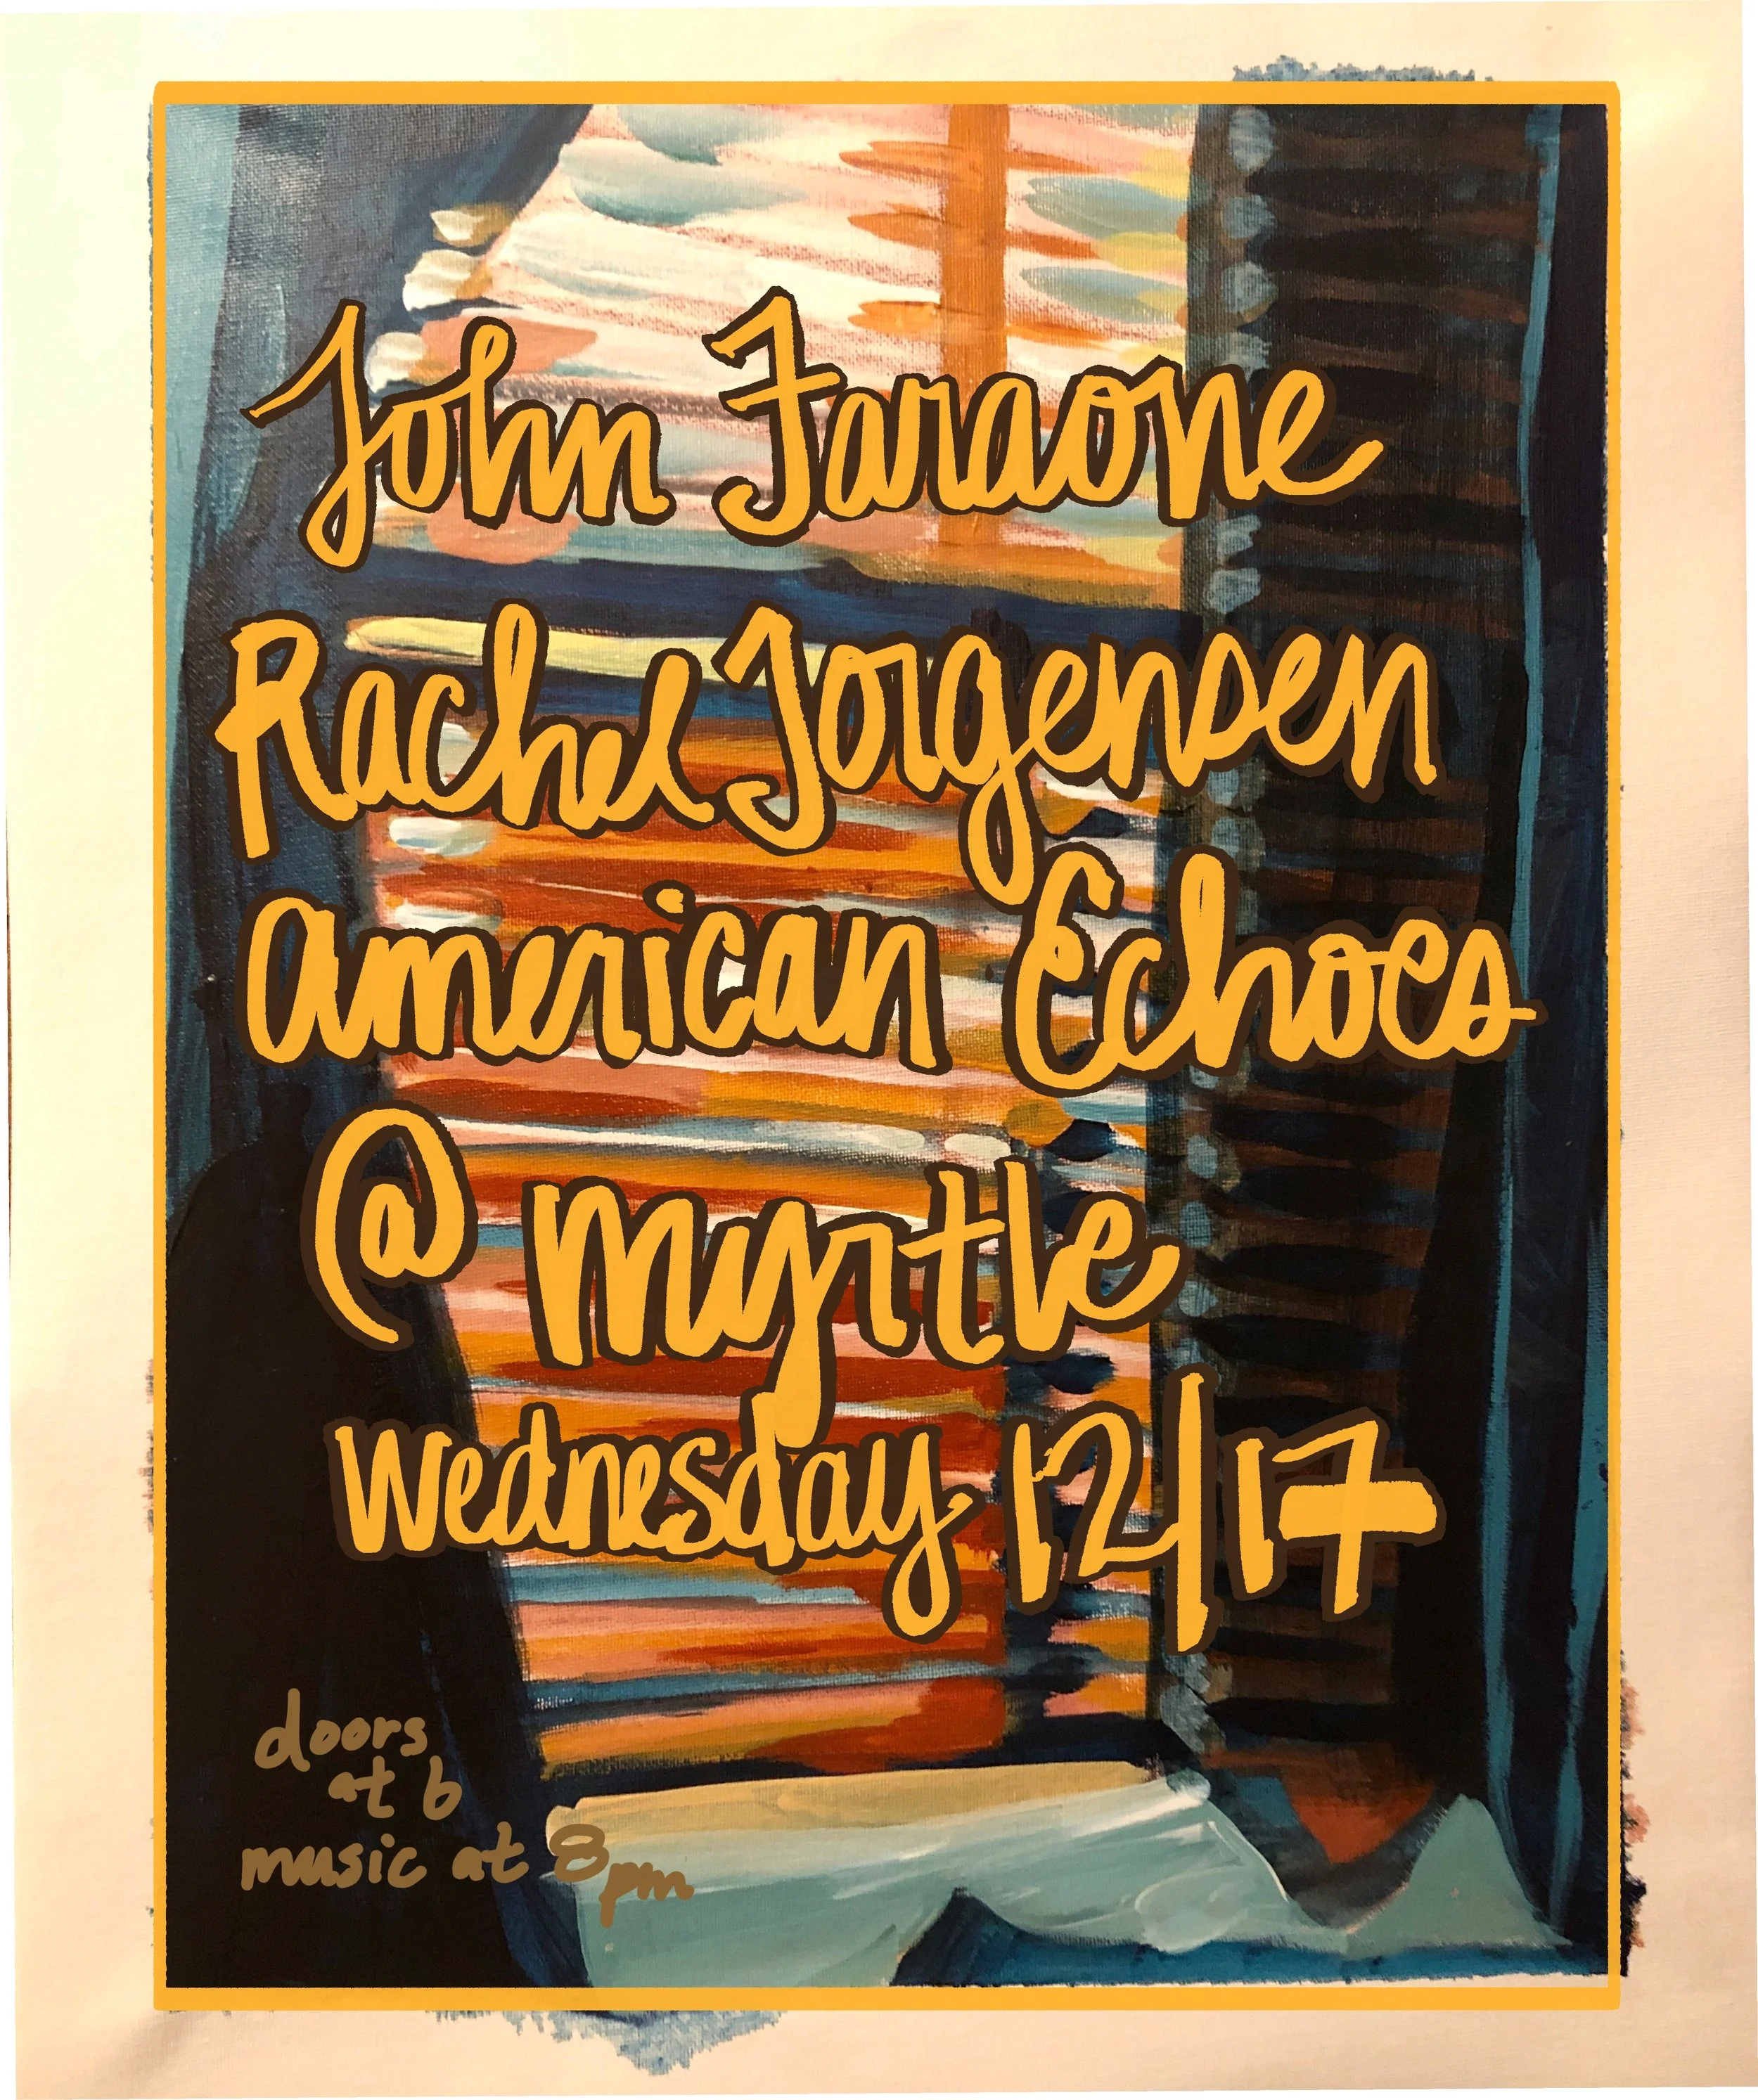 John Faraone
Rachel Jorgensen
American Echoes
@ Myrtle
Wednesday 12/17
doors
at 6
music at 8pm